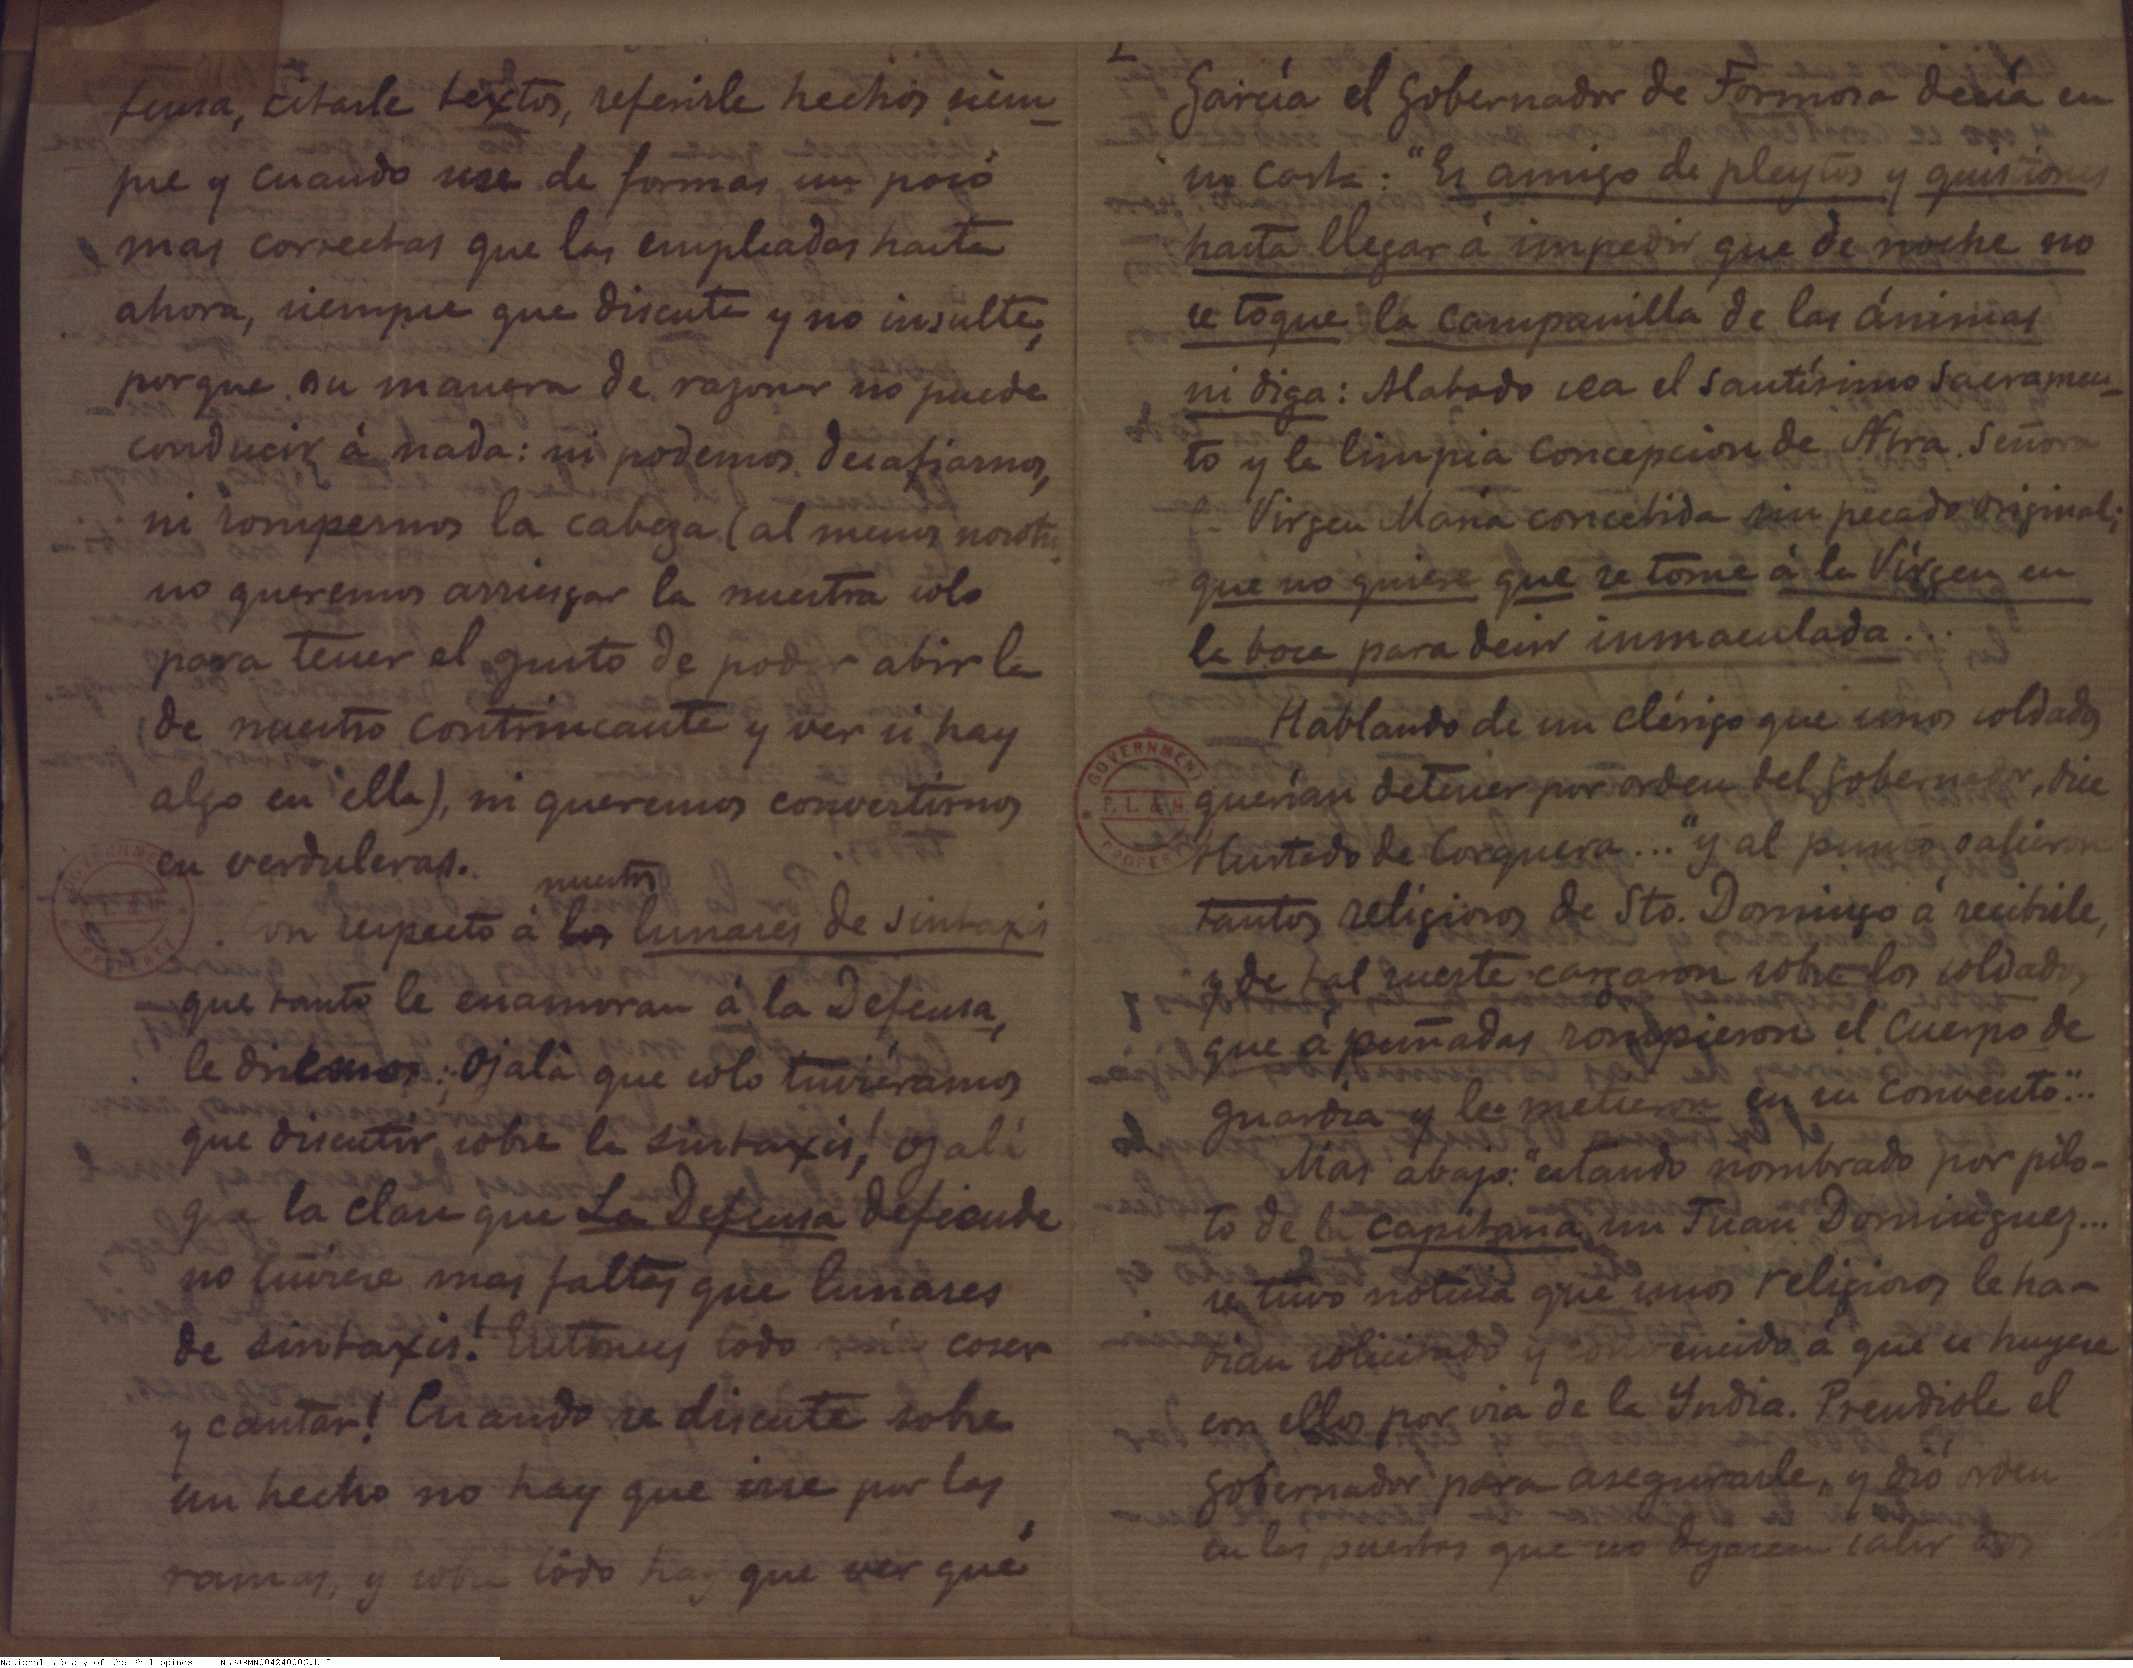 fensa, citarle textos, referirle hechos siem-
pre y cuando use de formas un poco
mas correctas que las empleadas hasta
ahora, siempre que discuta y no insulte,
porque su manera de razonar no puede
conducir á nada: ni podemos desafiarnos,
ni rompernos la cabeza (al menos nosotros
no queremos arriesgar la nuestra solo
para tener el gusto de poder abrir la
de nuestro contrincante y ver si hay
algo en ella), ni queremos convertirnos
en verduleras.
nuestros
Con respecto á los lunares de sintaxis
que tanto le enamoran á la Defensa,
le diremos: ojalá que solo tuviéramos
que discutir sobre la sintaxis! ojalá
que la clase que La Defensa defiende
no tuviese mas faltas que lunares
de sintaxis! Entonces todo coser
y cantar! Cuando se discute sobre
un hecho no hay que irse por las
ramas, y sobre todo hay que ver que
García el Gobernador de Formosa decía en
su carta: "Es amigo de pleytos y quistiones
hasta llegar á impedir que de noche no
se toque la campanilla de las ánimas
ni diga: Alabado sea el santísimo sacramen-
to y la limpia concepcion de Ntra. Señora
Virgen Maria concebida sin pecado original;
que no quiere que se tome á la Vírgen en
la boca para decir inmaculada...
Hablando de un clérigo que unos soldados
querían detener por orden del Gobernador, dice
Hurtado de Corquera..."y al punto salieron
tantos religiosos de Sto. Domingo á recibirle,
y de tal suerte cargaron sobre los soldados
que á puñadas rompieron el Cuerpo de
guardia y le metieron en su convento"...
Mas abajo: "estando nombrado por pilo-
to de la capitana un Juan Dominguez...
se tuvo noticia que unos religiosos le ha-
bian solicitado y convencido á que se huyese
con ellos por via de la India. Prendiole el
Gobernador para asegurarle, y dió orden
en las puertas que no dejasen salir los
GOVERNMENT
P. L. & M.
PROPERTY
National Library of the Philippines